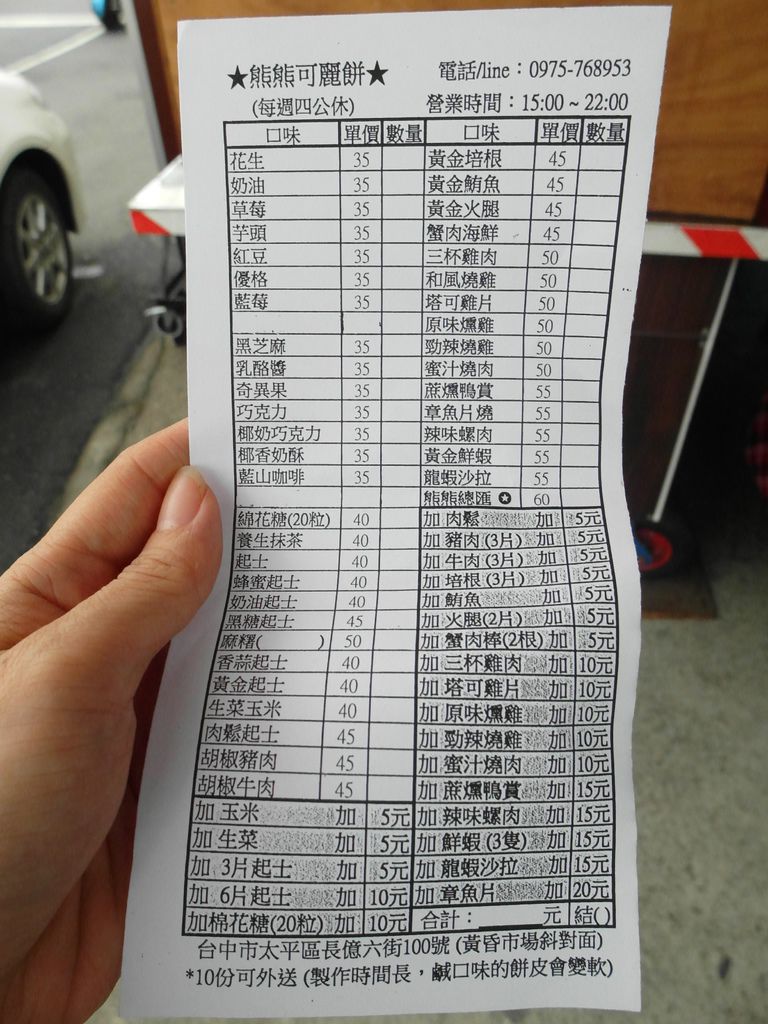 ★熊熊可麗餅★ 電話/line：0975-768953
(每週四公休) 營業時間：15:00 ~ 22:00
口味 單價 數量 口味 單價 數量
花生 35 黃金培根 45
奶油 35 黃金鮪魚 45
草莓 35 黃金火腿 45
芋頭 35 蟹肉海鮮 45
紅豆 35 三杯雞肉 50
優格 35 和風燒雞 50
藍莓 35 塔可雞片 50
原味燻雞 50
黑芝麻 35 勁辣燒雞 50
乳酪醬 35 蜜汁燒肉 50
奇異果 35 蔗燻鴨賞 55
巧克力 35 章魚片燒 55
椰奶巧克力 35 辣味螺肉 55
椰香奶酥 35 黃金鮮蝦 55
藍山咖啡 35 龍蝦沙拉 55
熊熊總匯✪ 60
綿花糖(20粒) 40 加 肉鬆 加 5元
養生抹茶 40 加 豬肉(3片) 加 5元
起士 40 加 牛肉(3片) 加 5元
蜂蜜起士 40 加 培根(3片) 加 5元
奶油起士 40 加 鮪魚 加 5元
黑糖起士 45 加 火腿(2片) 加 5元
麻糬( ) 50 加 蟹肉棒(2根) 加 5元
香蒜起士 40 加 三杯雞肉 加 10元
黃金起士 40 加 塔可雞片 加 10元
生菜玉米 40 加 原味燻雞 加 10元
肉鬆起士 45 加 勁辣燒雞 加 10元
胡椒豬肉 45 加 蜜汁燒肉 加 10元
胡椒牛肉 45 加 蔗燻鴨賞 加 15元
加 玉米 加 5元 加 辣味螺肉 加 15元
加 生菜 加 5元 加 鮮蝦(3隻) 加 15元
加 3片起士 加 5元 加 龍蝦沙拉 加 15元
加 6片起士 加 10元 加 章魚片 加 20元
加棉花糖(20粒) 加 10元 合計：______元 結( )
台中市太平區長億六街100號 (黃昏市場斜對面)
*10份可外送 (製作時間長，鹹口味的餅皮會變軟)